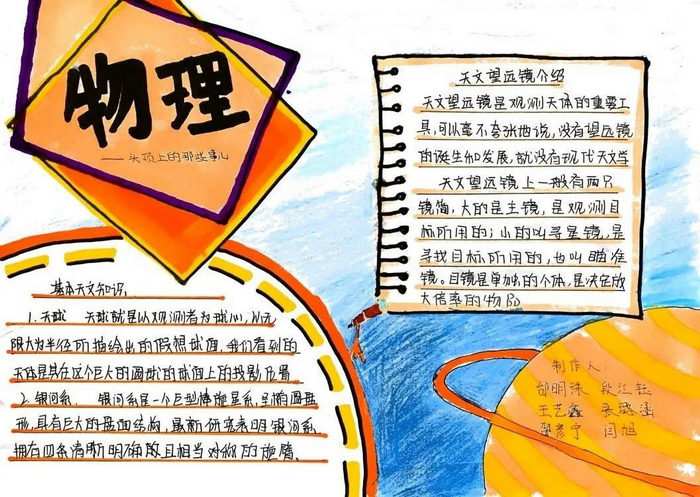 物理
——头顶上的那些事儿
天文望远镜介绍
天文望远镜是观测天体的重要工
具,可以毫不夸张地说,没有望远镜
的诞生和发展,就没有现代天文学
天文望远镜上一般有两只
镜筒,大的是主镜,是观测目
标所用的;小的叫寻星镜,是
寻找目标所用的,也叫瞄准
镜。目镜是单独的个体,是决定放
大倍率的物品
基本天文知识:
1.天球 天球就是以观测者为球心,以无
限大为半径所描绘出的假想球面,我们看到的
天体是其在这个巨大的圆球的球面上的投影位置
2.银河系: 银河系是一个巨型棒旋星系,呈椭圆盘
形,具有巨大的盘面结构,最新研究表明银河系
拥有四条清晰明确且相当对称的旋臂。
制作人:
胡明洙 段江钰
王艺鑫 张潞涵
彦宁 闫旭